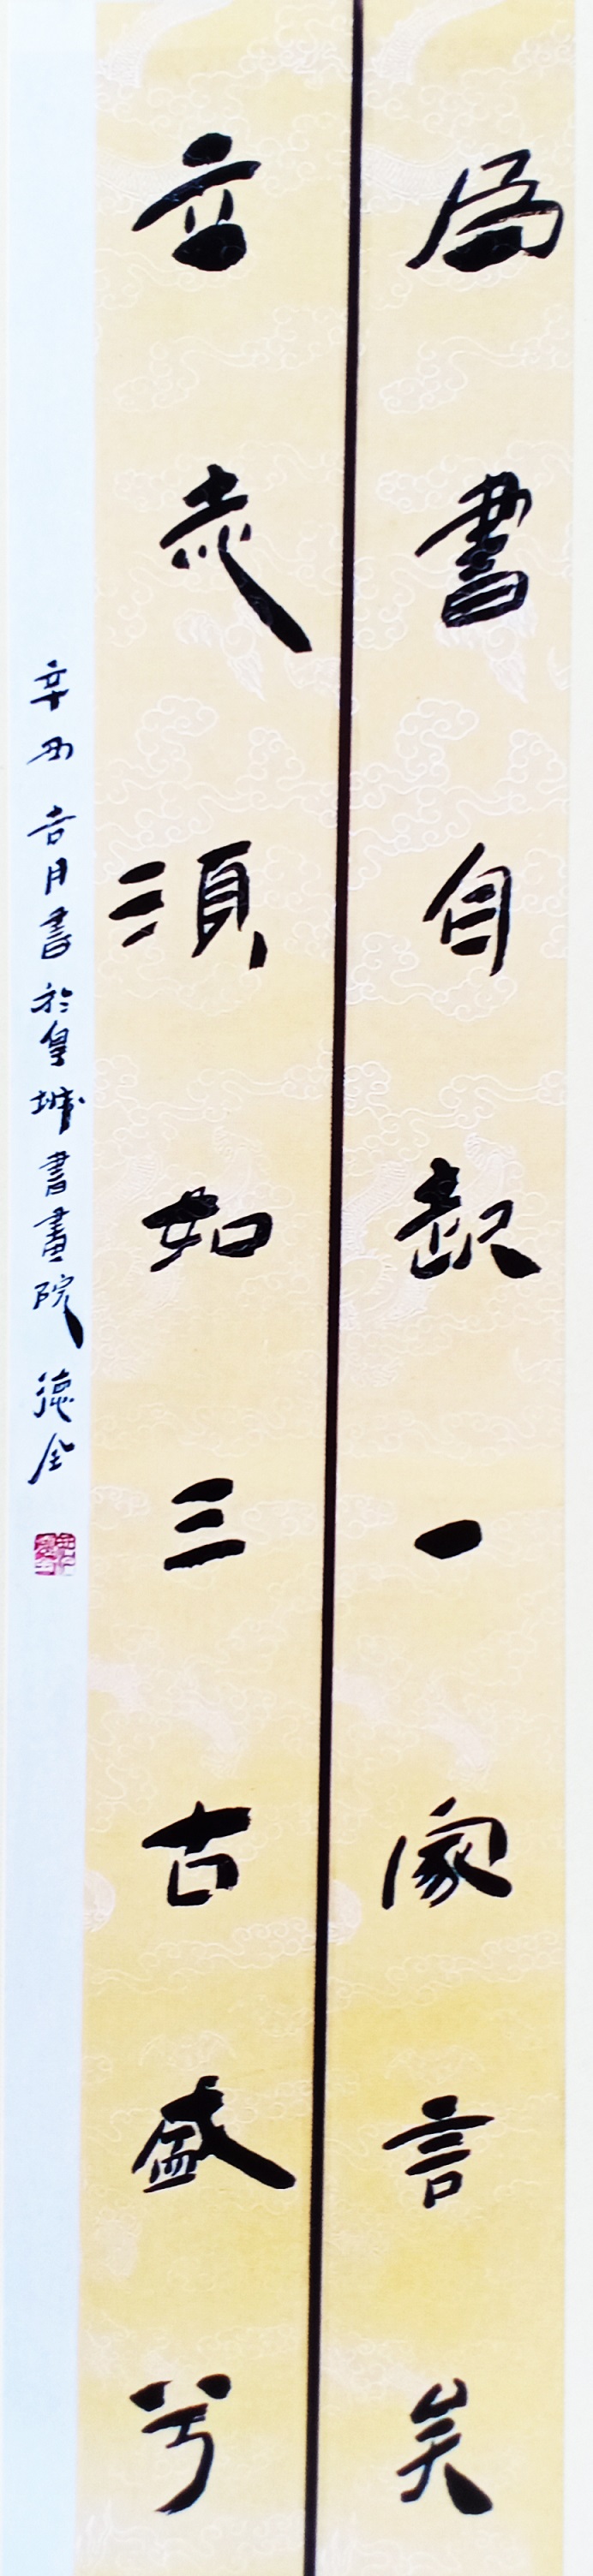 為書自起一家言矣
立志須如三古盛兮
辛丑吉月書於皇城書畫院德全